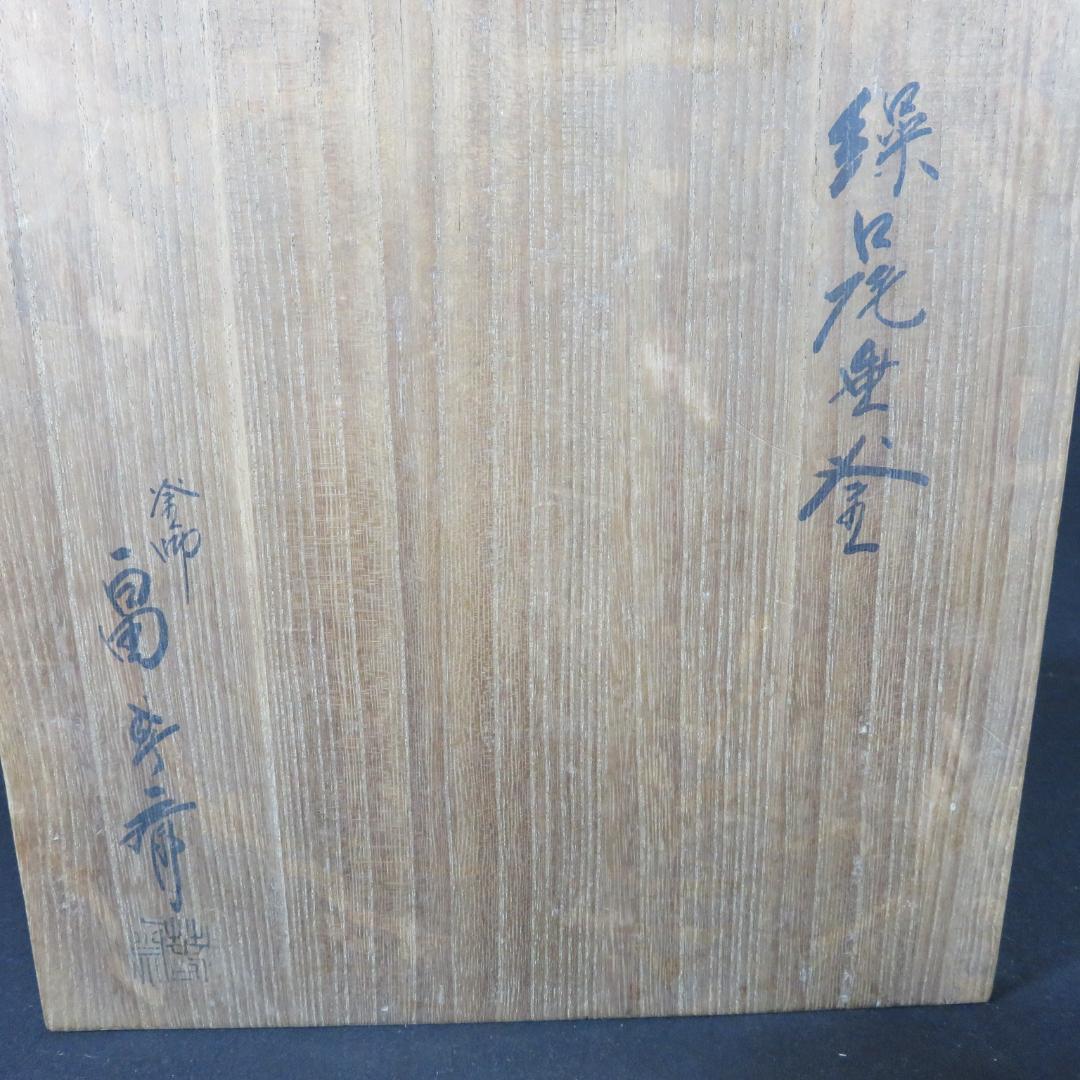 繰口尾垂釜
釜師
畠春斎